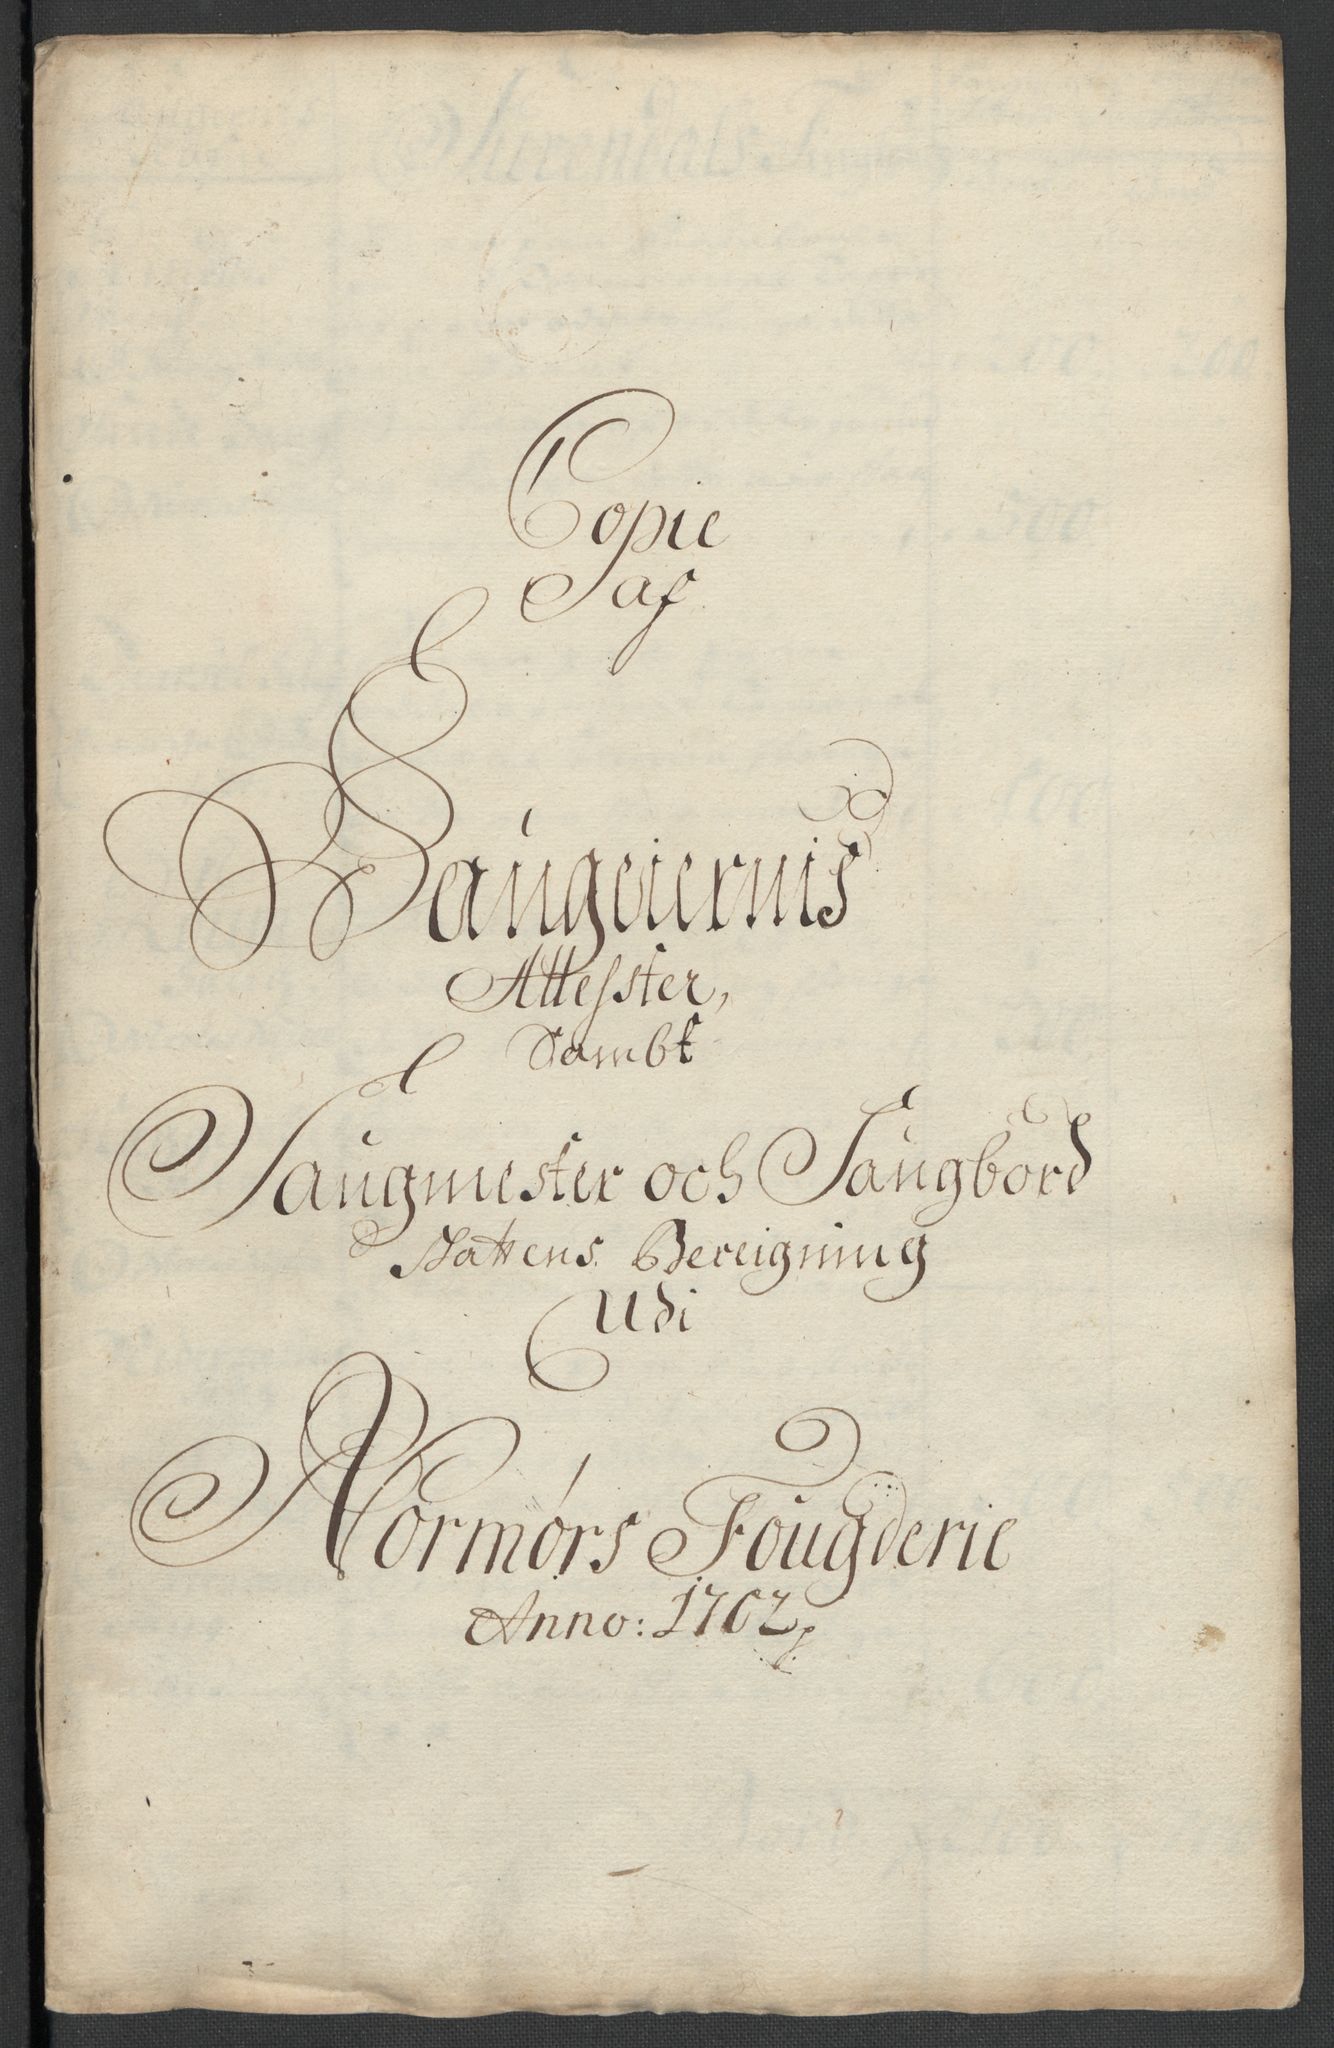 Copie
af
Saugeiernis
Attesster,
Sambt
Saugmester och Saugbord
Skattens Bereigning
Udi
Normørs Fougderie
Anno: 1702